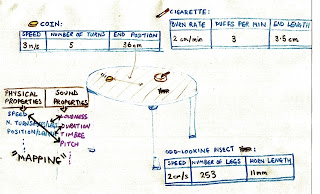 COIN:
SPEED NUMBER OF TURNS END POSITION
3 m/s 5 36cm
CIGARETTE:
BURN RATE PUFFS PER MIN END LENGTH
2 cm/min 3 3.5 cm
PHYSICAL PROPERTIES SOUND PROPERTIES
SPEED LOUDNESS
DURATION
POSITION TIMBRE
PITCH
"MAPPING"
ODD-LOOKING INSECT :
SPEED NUMBER OF LEGS HORN LENGTH
2cm/s 253 11mm